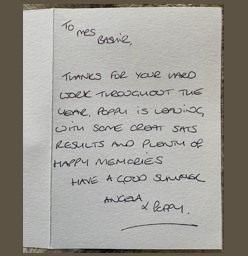 TO MRS BASHIR,
THANKS FOR YOUR HARD
WORK THROUGHOUT THE
YEAR. POPPY IS LEAVING
WITH SOME GREAT SATS
RESULTS AND PLENTY OF
HAPPY MEMORIES
HAVE A GOOD SUMMER
ANGELA
& POPPY.